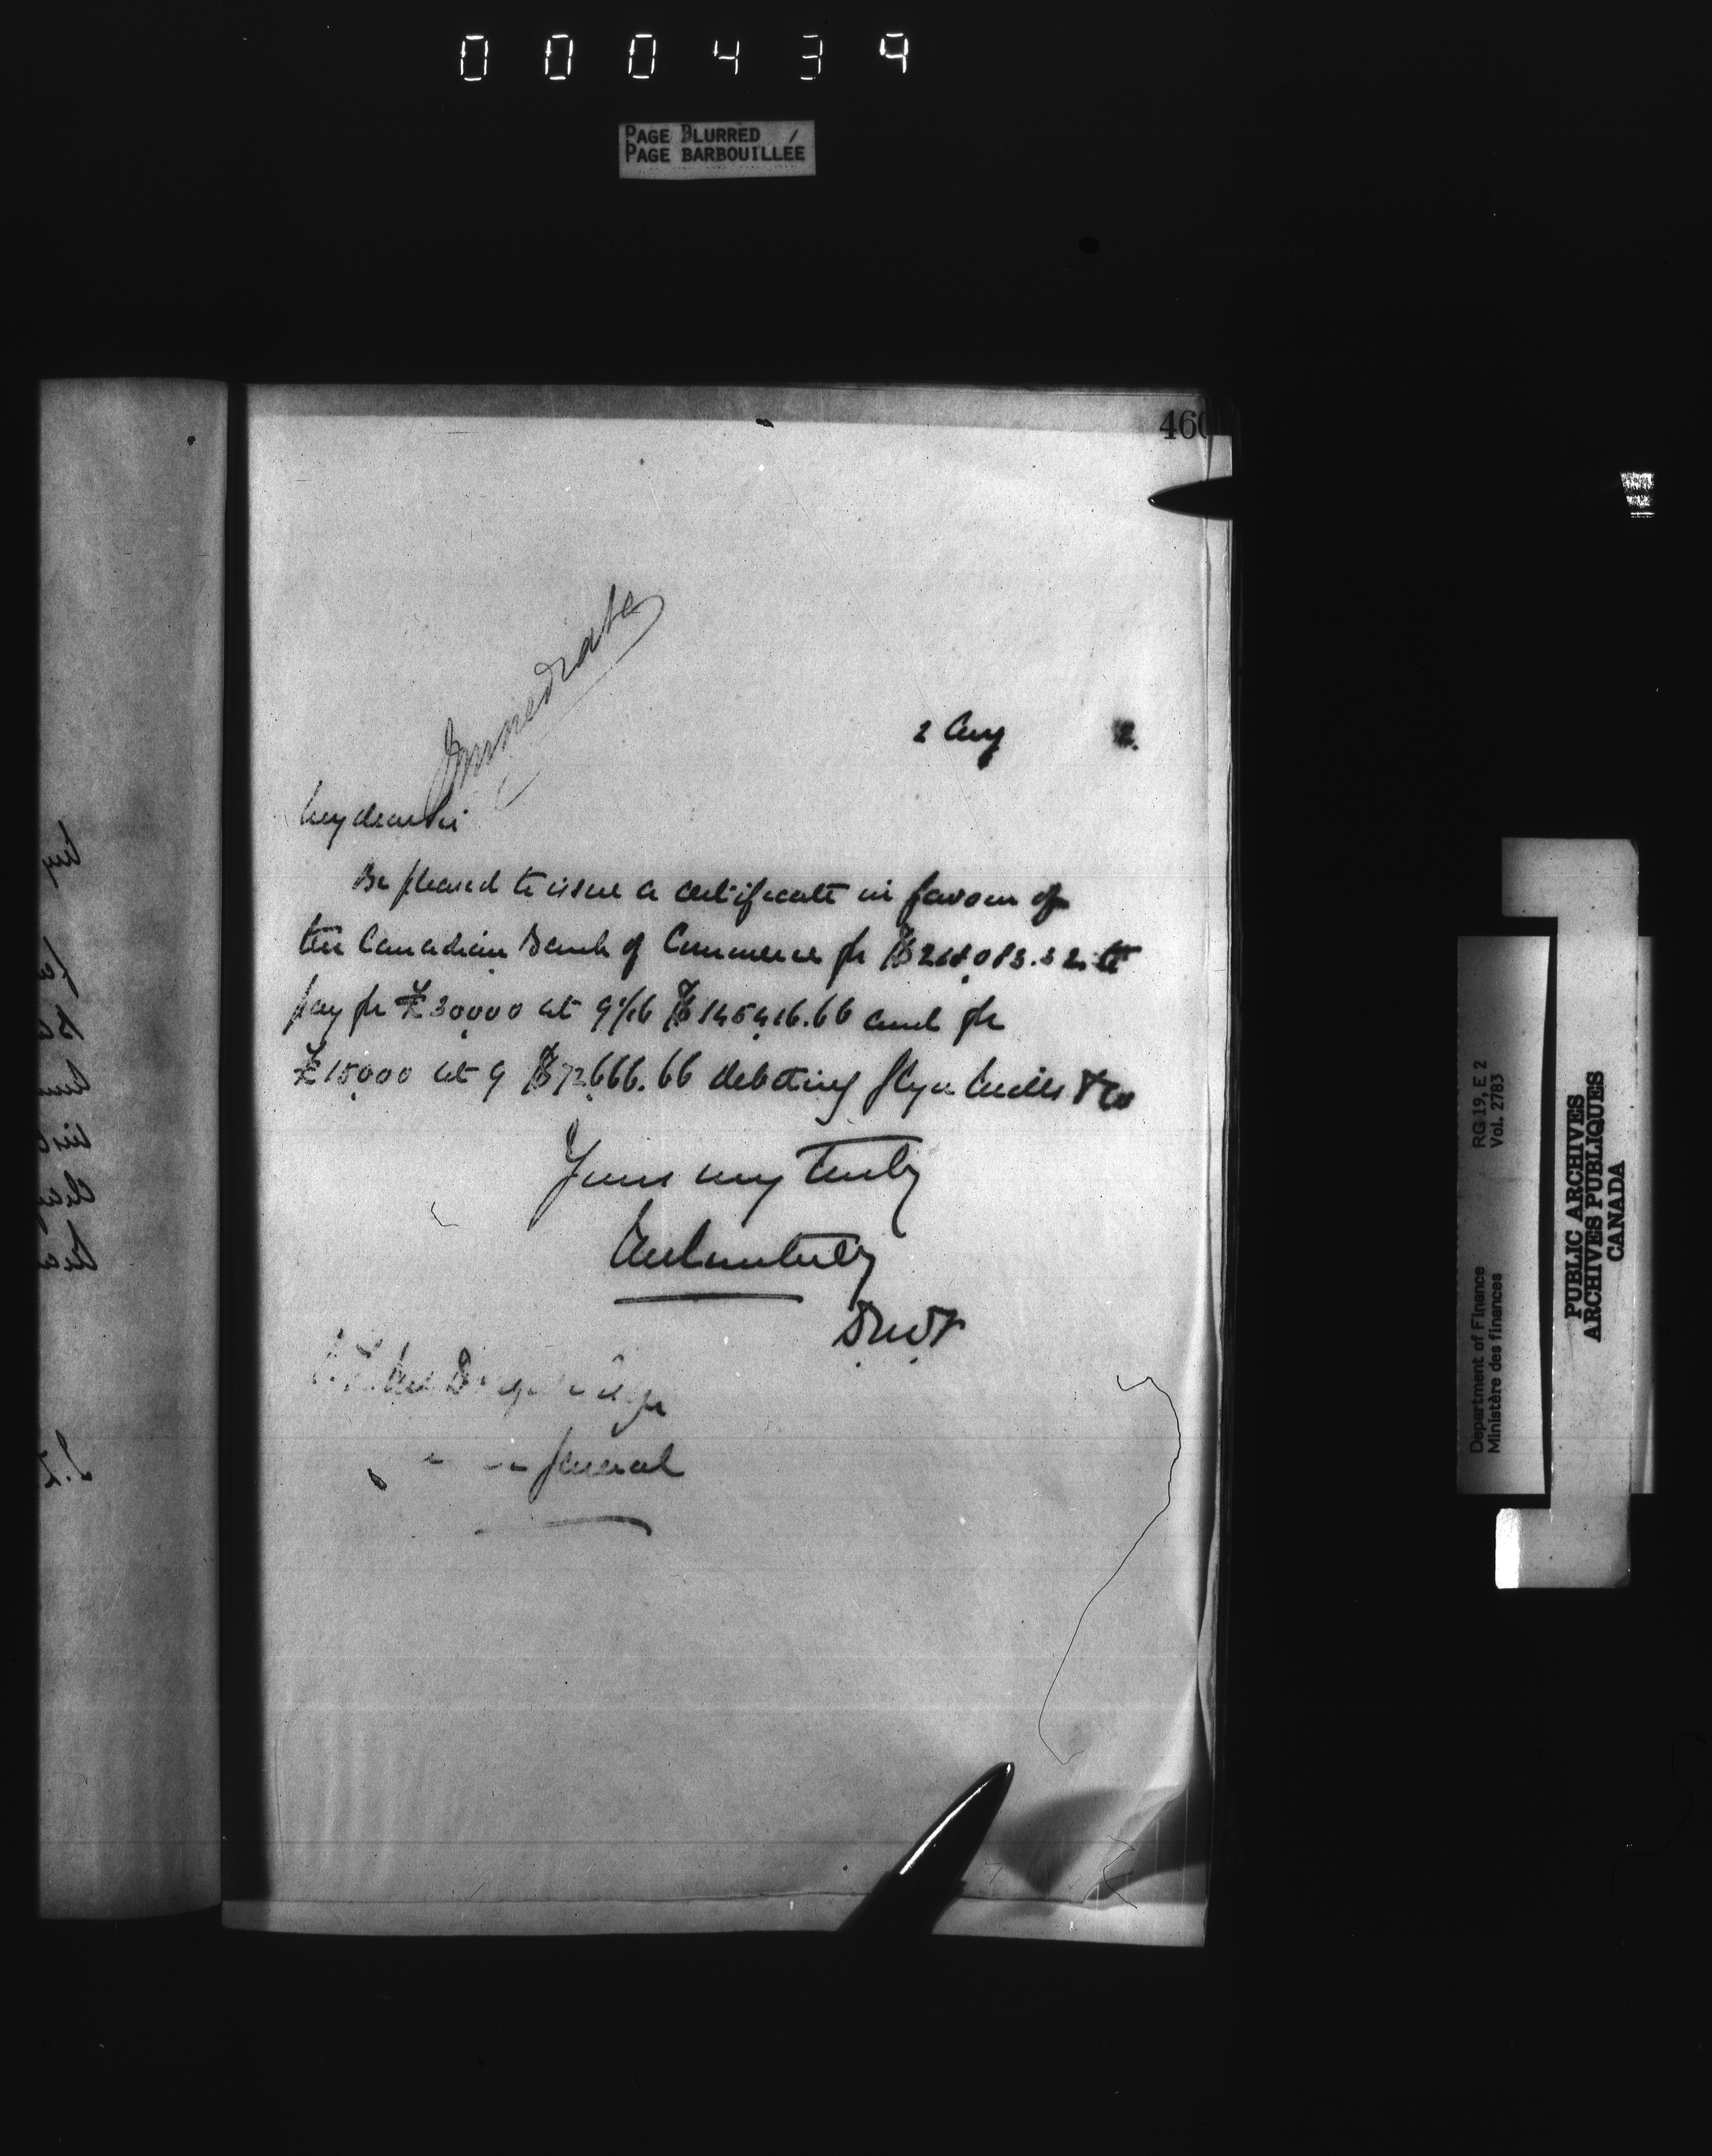 000439
PAGE BLURRED
PAGE BARBOUILLÉE
460
Immediate
2 Aug 2.
My dear Sir
Be pleased to issue a certificate in favour of
the Canadian Bank of Commerce for $218,083.32 to
pay for £30,000 at 9 1/16 $145,416.66 and for
£15,000 at 9 $72,666.66 debiting Glyn Mills & Co
Yours very truly
DMF
General
Department of Finance RG 19, E 2
Ministère des finances Vol. 2783
PUBLIC ARCHIVES
ARCHIVES PUBLIQUES
CANADA